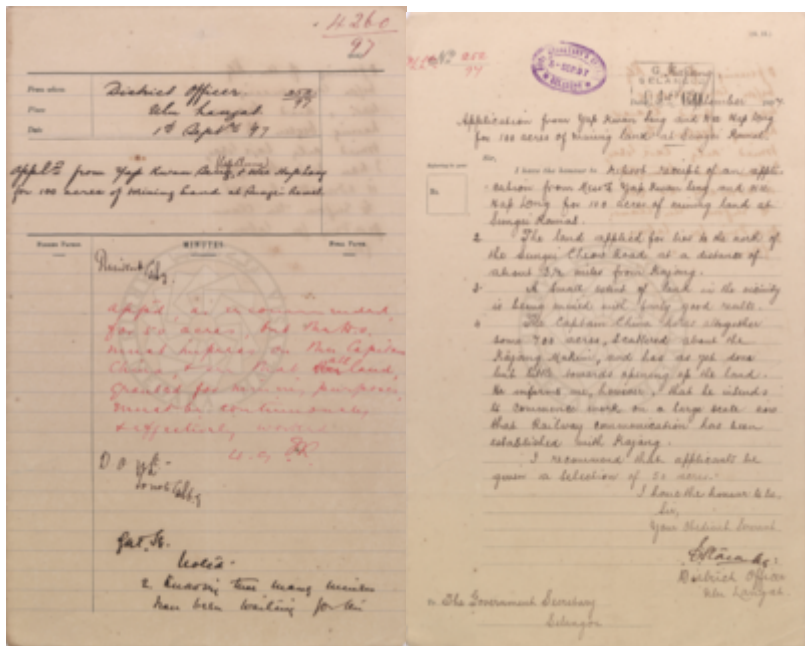 4260
97
From whom District Officer. 252/97
Place Ulu Langat.
Date 1st Septr 97
Appln from Yap Kwan Seng, & Wee Hap Long
for 100 acres of Mining Land at Sungei Ramal.
MINUTES.
Resident
App'd as recommended
for 50 acres, but the D.O.
must impress on the Capitan
China, that all land,
granted for mining purposes
must be continuously
& effectively worked
D.O.
Govt. Sec.
Noted.
2. Knowing how many miners
have been waiting for
252
97
SELANGOR
September 1897
Application from Yap Kwan Seng and Wee Hap Long
for 100 acres of mining land at Sungei Ramal.
Sir,
I have the honour to report receipt of an appli-
cation from Messrs Yap Kwan Seng and Wee
Hap Long for 100 acres of mining land at
Sungei Ramal.
2. The land applied for lies to the north of
the Sungei Cheow Road at a distance of
about 3½ miles from Kajang.
3. A small extent of land in the vicinity
is being mined with fairly good results.
4. The Captain China holds altogether
some 700 acres, scattered about the
Kajang Mukim, and has as yet done
but little towards opening up the land.
He informs me, however, that he intends
to commence work on a large scale now
that Railway communication has been
established with Kajang.
I recommend that applicants be
given a selection of 50 acres.
I have the honour to be,
Sir,
Your obedient servant
District Officer
Ulu Langat
The Government Secretary
Selangor